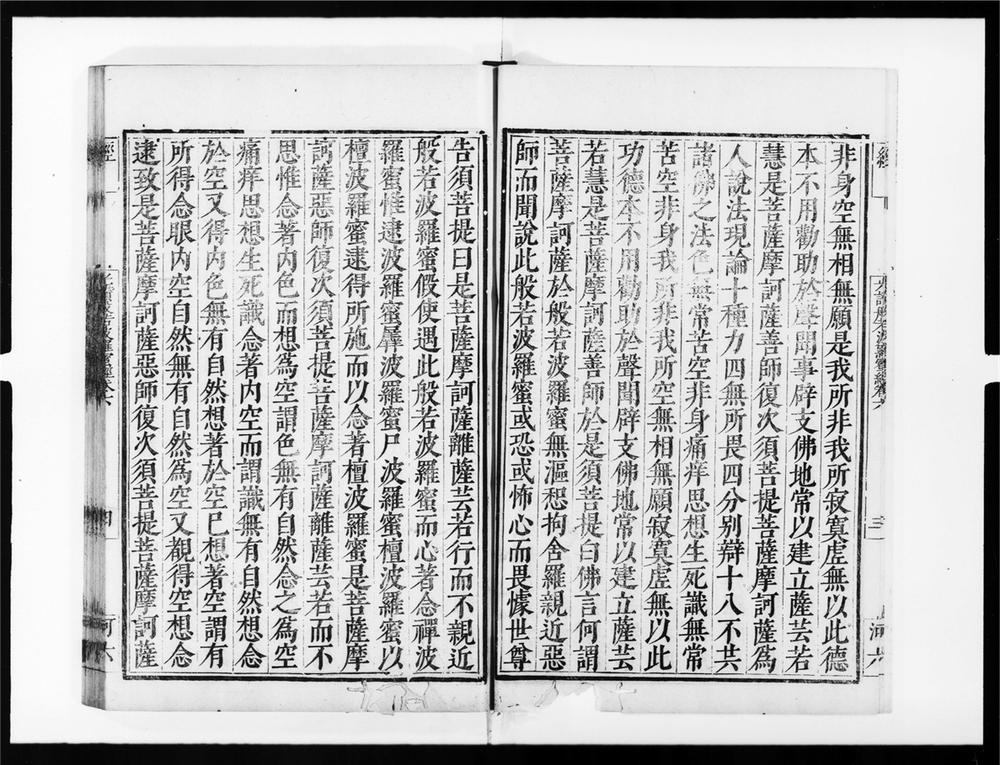 非身空無相無願是我所非我所寂寞虛無以此德
本不用勸助於聲聞事辟支佛地常以建立薩芸若
慧是菩薩摩訶薩善師復次須菩提菩薩摩訶薩爲
人說法現論十種力四無所畏四分别辯十八不共
諸佛之法色無常苦空非身痛痒思想生死識無常
苦空非身我所非我所空無相無願寂寞虛無以此
功德本不用勸助於聲聞辟支佛地常以建立薩芸
若慧是菩薩摩訶薩善師於是須菩提白佛言何謂
菩薩摩訶薩於般若波羅蜜無漚惒拘舍羅親近惡
師而聞說此般若波羅蜜或恐或怖心而畏懅世尊
告須菩提曰是菩薩摩訶薩離薩芸若行而不親近
般若波羅蜜假使遇此般若波羅蜜而心著念禪波
羅蜜惟逮波羅蜜羼波羅蜜尸波羅蜜檀波羅蜜以
檀波羅蜜逮得所施而以念著檀波羅蜜是菩薩摩
訶薩惡師復次須菩提菩薩摩訶薩離薩芸若而不
思惟念著内色而想爲空謂色無有自然念之爲空
痛痒思想生死識念著内空而謂識無有自然想念
於空又得内色無有自然想著於空已想著空謂有
所得念眼内空自然無有自然爲空又覩得空想念
逮致是菩薩摩訶薩惡師復次須菩提菩薩摩訶薩
經
河六